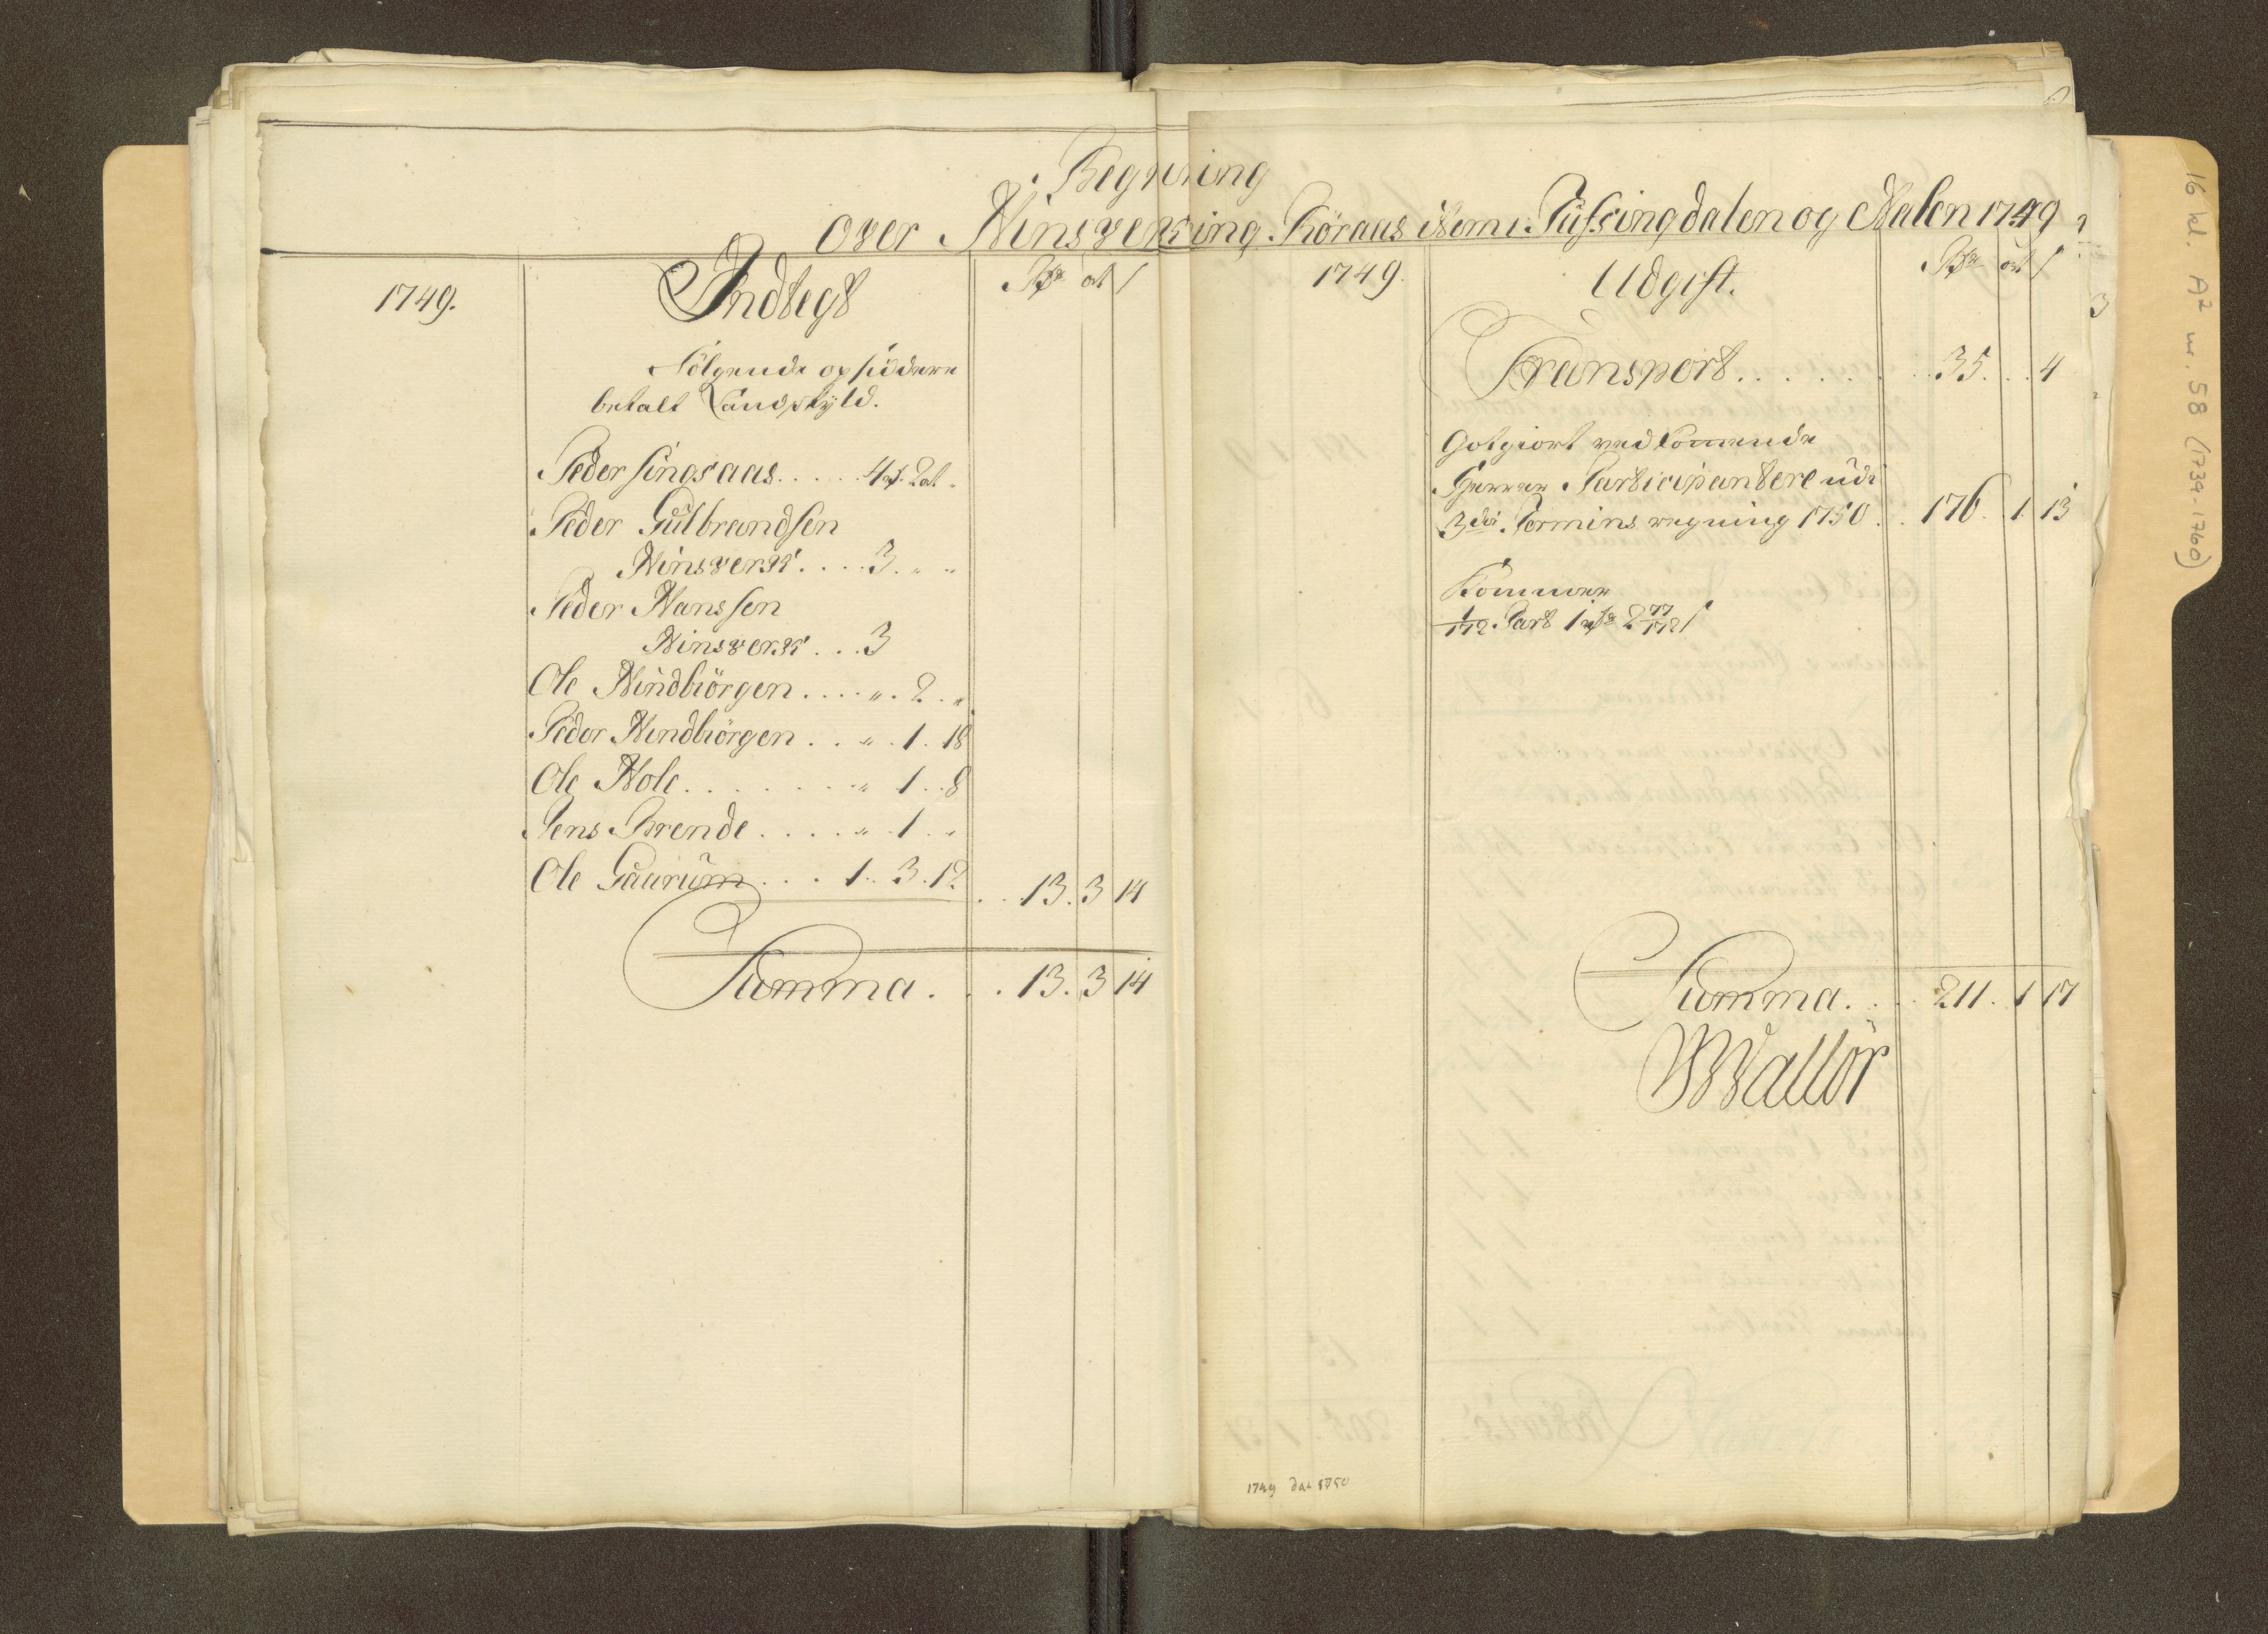 Regnning
over Hinsverk ing. Röraas item i Tüfsingdalen og Aalen 1749
1749.
Indtegt
Rdr ort s
Følgende opsiddere
betalt Landskyld.
Peder Singsaas..... 4 rd. 2 ort "
Peder Gülbrandsen
Hinsverk.... 3. " "
Peder Hanssen
Hinsverk... 3
Ole Hindbiörgen.... ". 2. "
Peder Hindbiörgen.. ". 1. 18
Ole Hole....... " 1.. 8
Jens Brende..... " 1.. "
Ole Gaurüm... 1. 3. 12 .. 13. 3 14
Summa... 13. 3 14
1749.
Udgift.
Rdr ort s
Transport....... 35... 4
Gotgiort vedkommende
Herrer Participantere udi
3die Termins regning 1750.. 176. 1. 13
Kommer
1/172 Part 1 rdr 2 77/172 s
Summa.... 211. 1 17
Wallör
1749 dat 1750
16 kl. A2 nr. 58 (1739-1760)